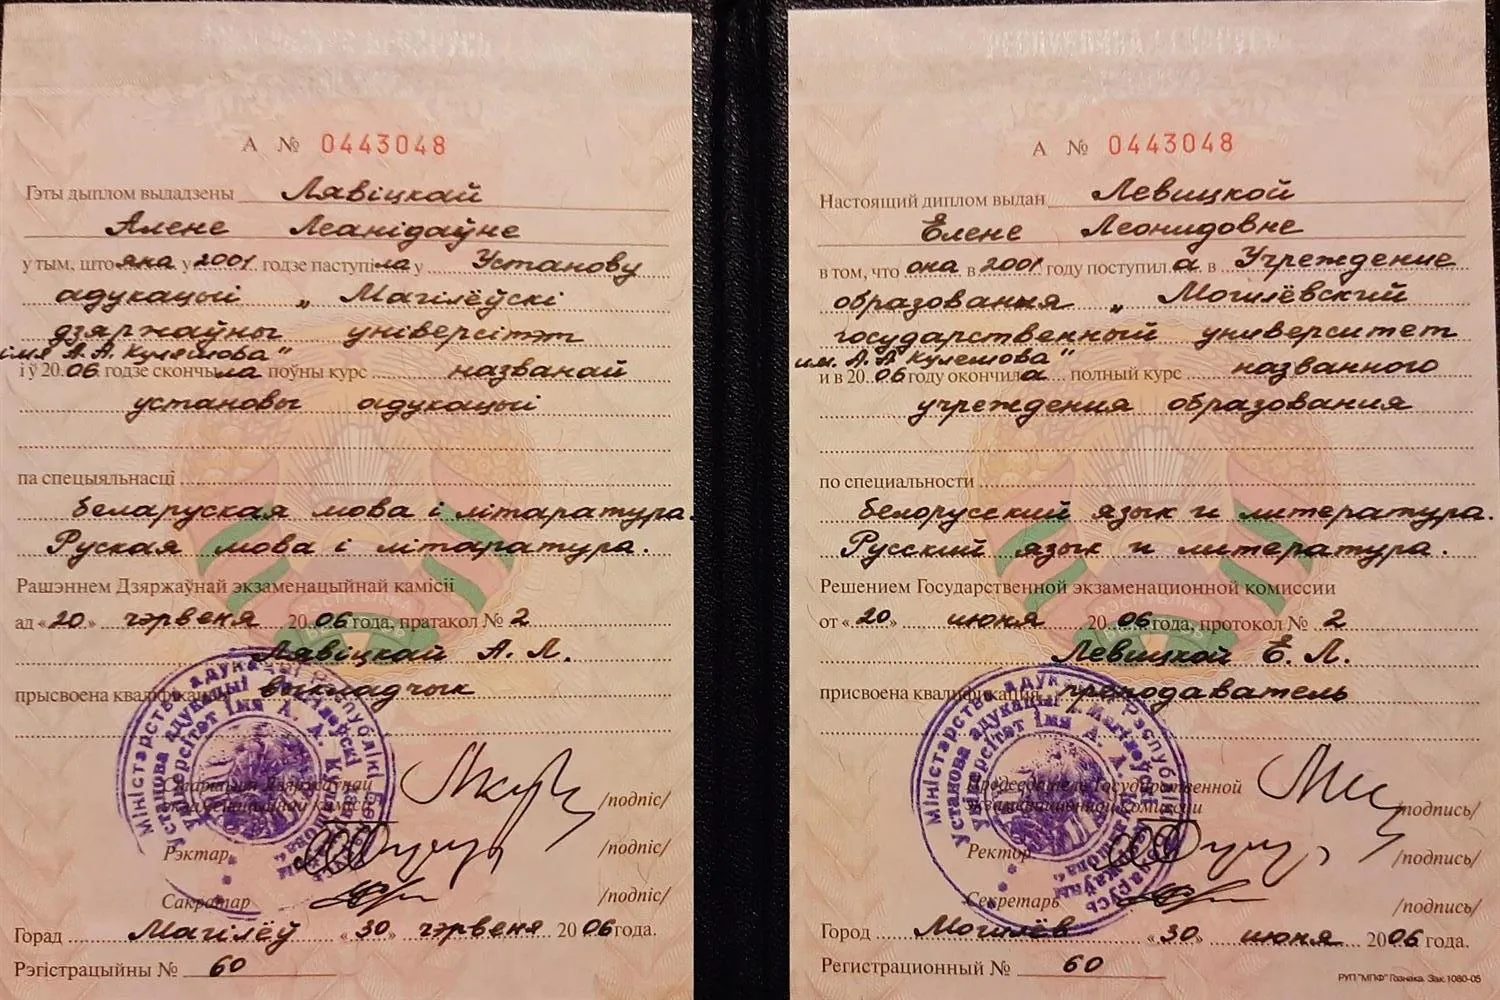 А № 0443048
Гэты дыплом выдадзены Лявіцкай
Алене Леанідаўне
у тым, што яна у 2001 годзе паступіла у Установу
адукацыі „Магілёўскі
дзяржаўны універсітэт
імя А.А. Куляшова"
і ў 2006 годзе скончыла поўны курс названай
установы адукацыі
па спецыяльнасці
беларуская мова і літаратура.
Руская мова і літаратура.
Рашэннем Дзяржаўнай экзаменацыйнай камісіі
ад «20» чэрвеня 2006 года, пратакол № 2
Лявіцкай А. Л.
прысвоена кваліфікацыя выкладчык
Старшыня Дзяржаўнай
экзаменацыйнай камісіі /подпіс/
Рэктар /подпіс/
Сакратар /подпіс/
Горад Магілёў «30» чэрвеня 2006 года.
Рэгістрацыйны № 60
А № 0443048
Настоящий диплом выдан Левицкой
Елене Леонидовне
в том, что она в 2001 году поступила в Учреждение
образования „Могилёвский
государственный университет
им. А.А. Кулешова"
и в 2006 году окончила полный курс названного
учреждения образования
по специальности
белорусский язык и литература.
Русский язык и литература.
Решением Государственной экзаменационной комиссии
от «20» июня 2006 года, протокол № 2
Левицкой Е. Л.
присвоена квалификация преподаватель
Председатель Государственной
экзаменационной комиссии /подпись/
Ректор /подпись/
Секретарь /подпись/
Город Могилёв «30» июня 2006 года.
Регистрационный № 60
РУП "МПФ" Гознака. Зак. 1080-05
Міністэрства адукацыі Рэспублікі Беларусь
Установа адукацыі „Магілёўскі дзяржаўны
універсітэт імя А. А. Куляшова"